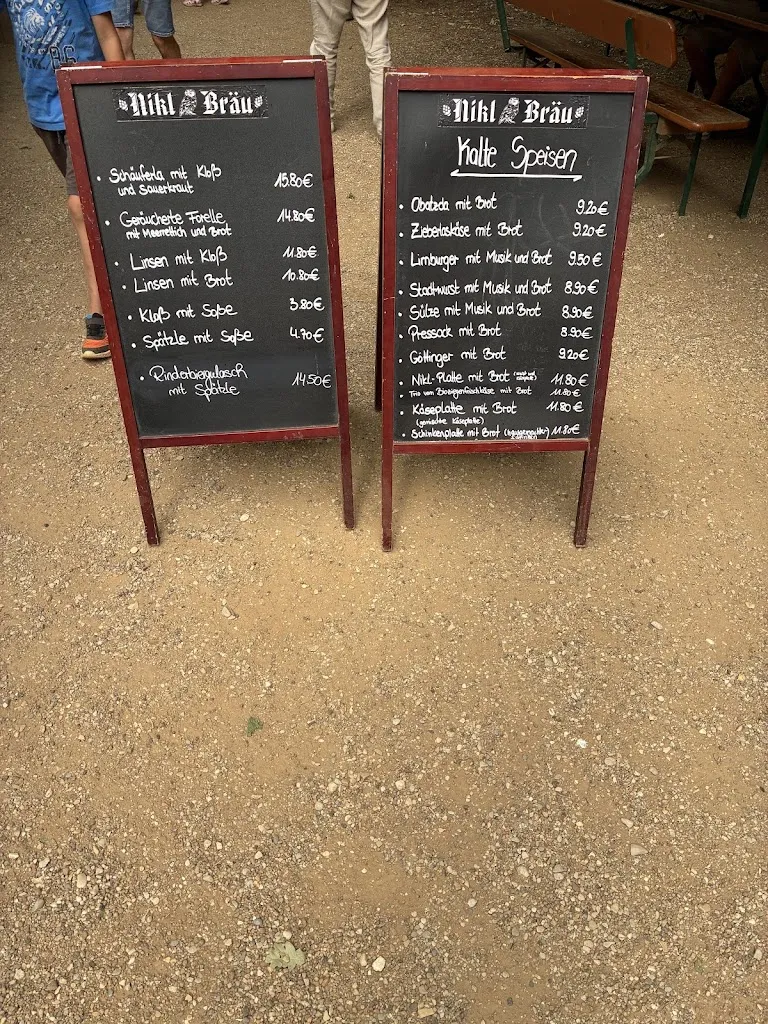 Nikl Bräu
• Schäuferla mit Kloß 15.80€
und Sauerkraut
• Geräucherte Forelle 14.80€
mit Meerrettich und Brot
• Linsen mit Kloß 11.80€
• Linsen mit Brot 10.80€
• Kloß mit Soße 3.80€
• Spätzle mit Soße 4.70€
• Rinderbiergulasch 14.50€
mit Spätzle
Nikl Bräu
Kalte Speisen
• Obatzda mit Brot 9.20€
• Ziebelaskäse mit Brot 9.20€
• Limburger mit Musik und Brot 9.50€
• Stadtwurst mit Musik und Brot 8.90€
• Sülze mit Musik und Brot 8.90€
• Pressack mit Brot 8.90€
• Göttinger mit Brot 9.20€
• Nikl-Platte mit Brot 11.80€
• Trio vom Bioziegenfrischkäse mit Brot 11.80€
• Käseplatte mit Brot 11.80€
(gemischte Käseplatte)
• Schinkenplatte mit Brot 11.80€